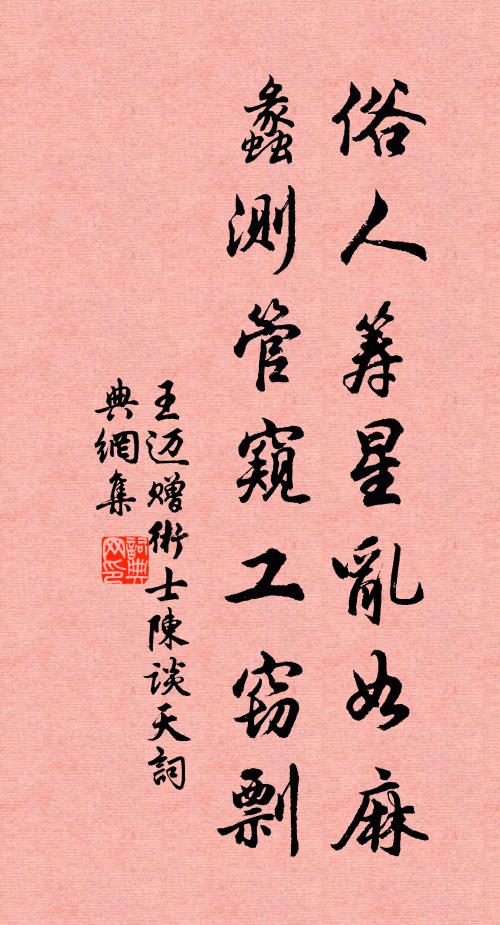 俗人筭星亂如麻
蠡測管窺工窃剽
王迈赠術士陳谈天詞
典網集
詞典網印